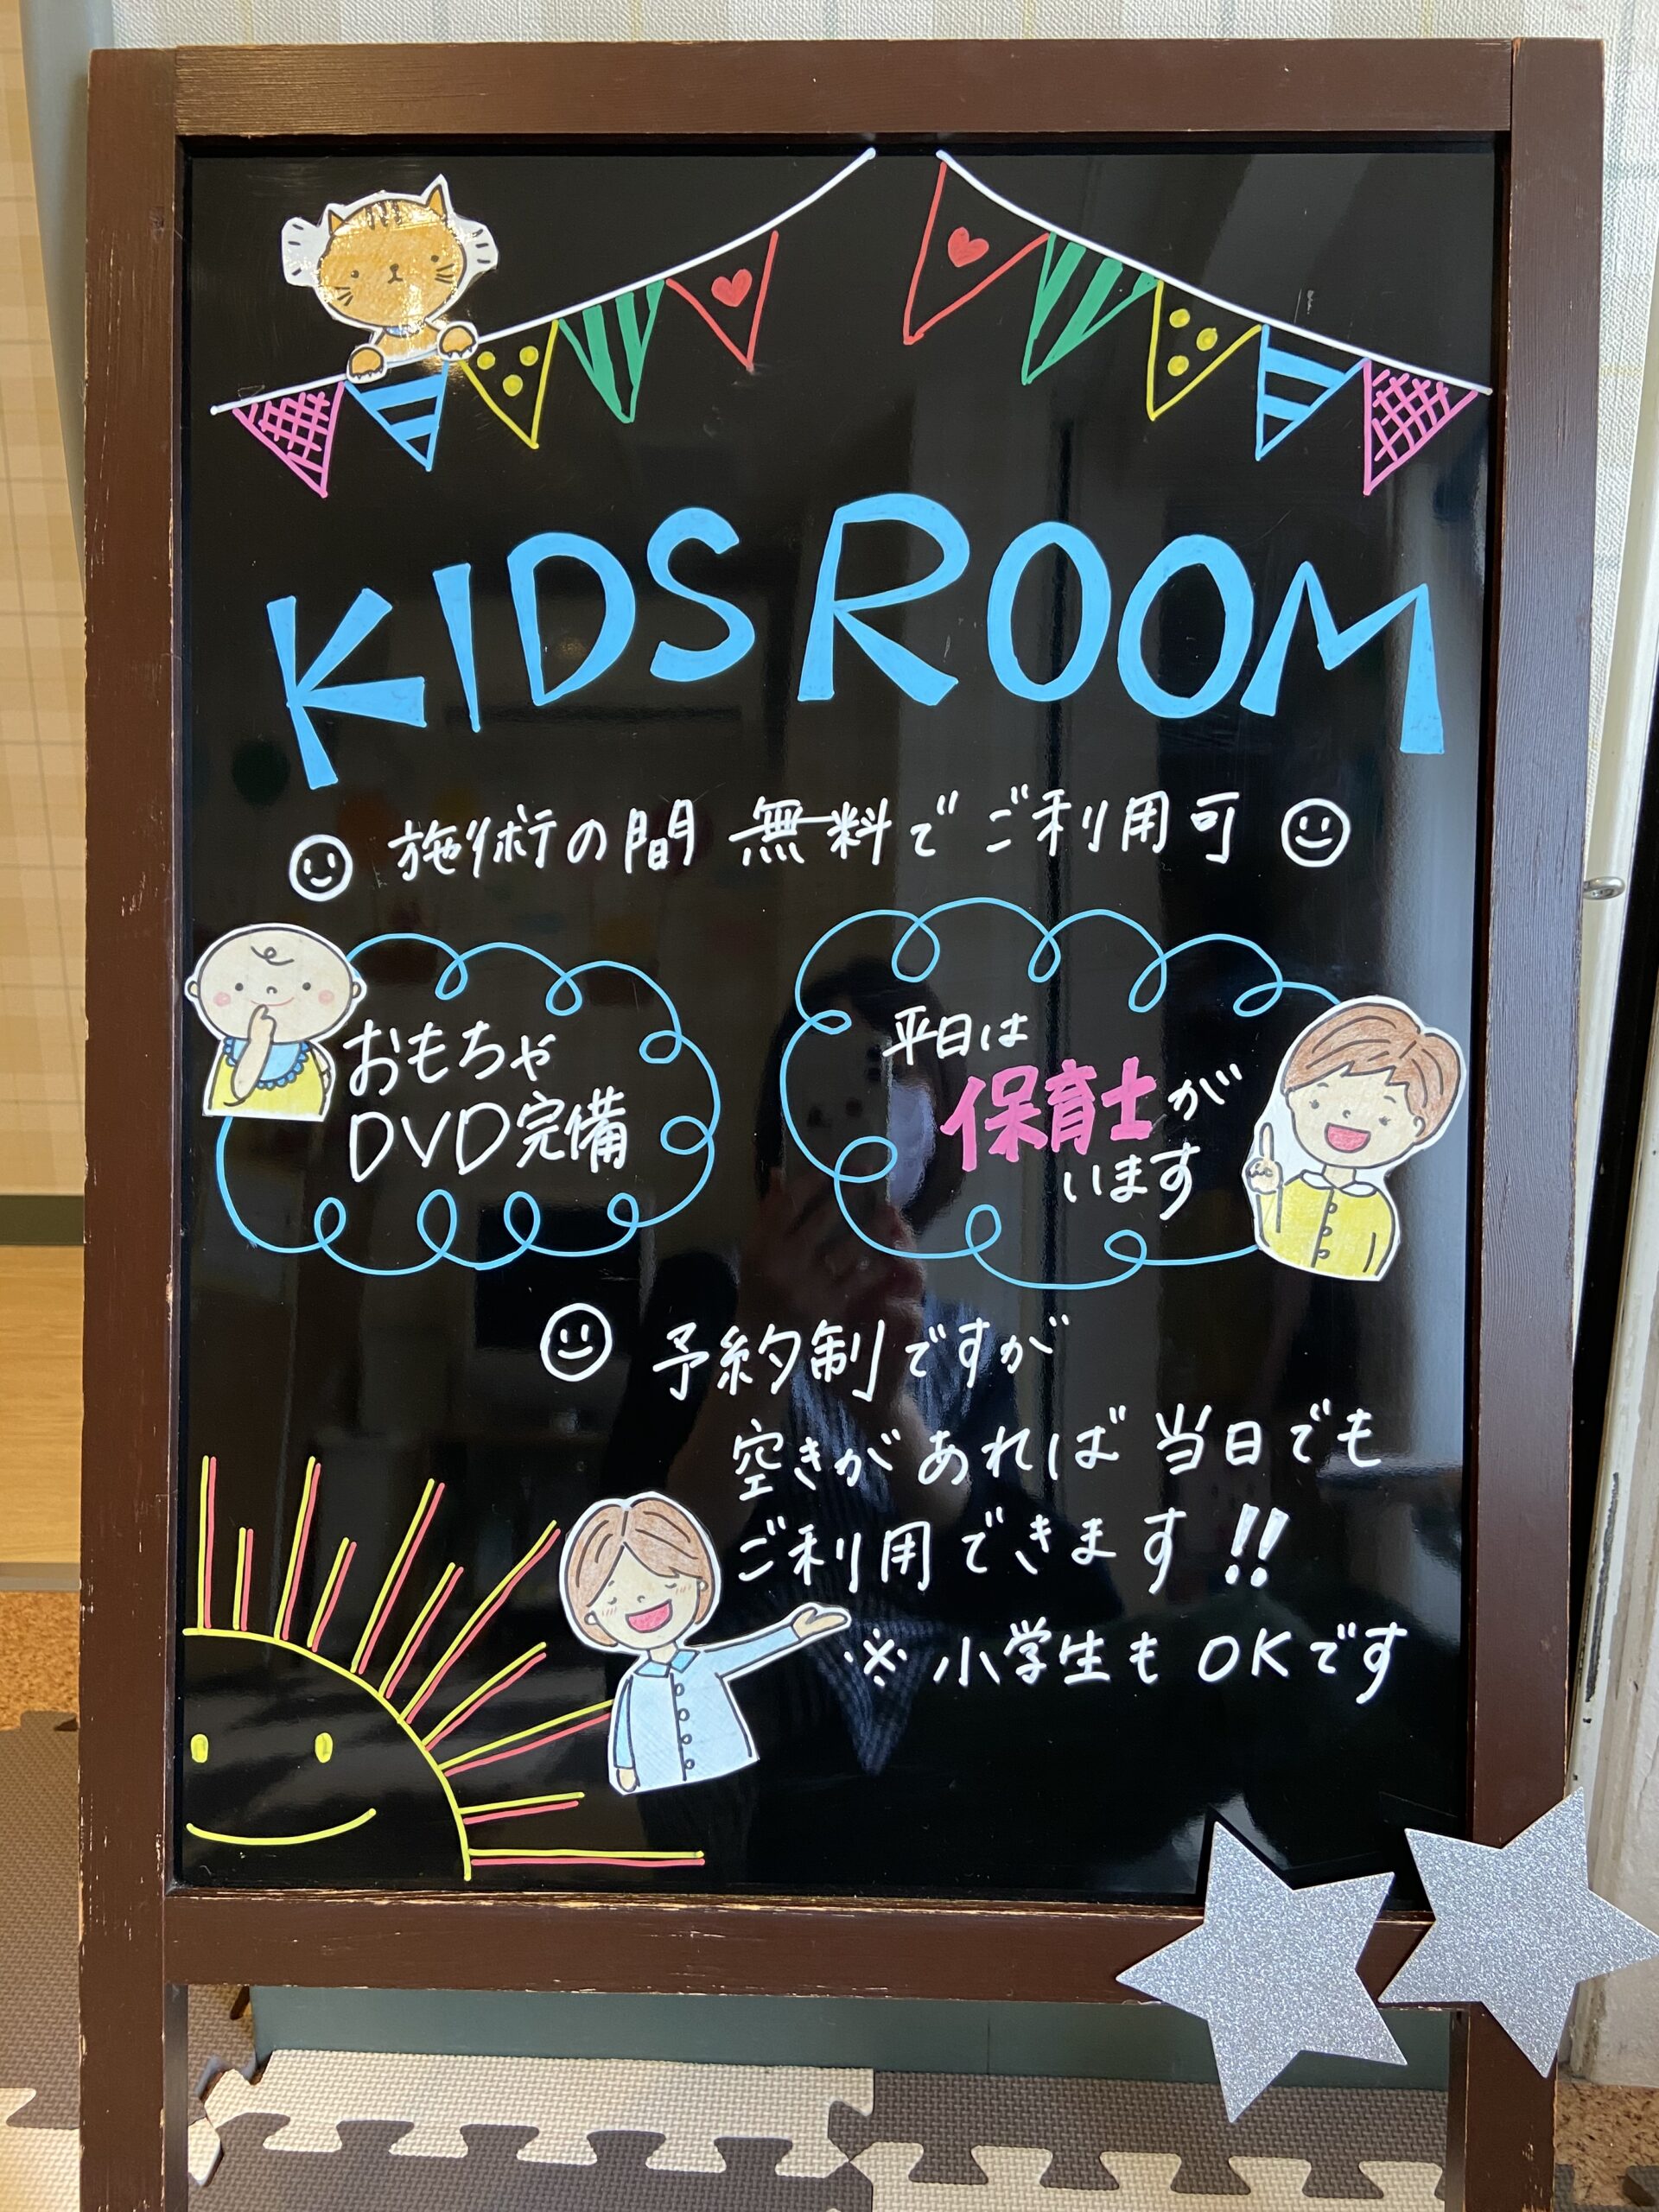 KIDS ROOM
施術の間 無料でご利用可
おもちゃ
DVD完備
平日は
保育士が
います
予約制ですが
空きがあれば 当日でも
ご利用できます!!
※小学生も OKです